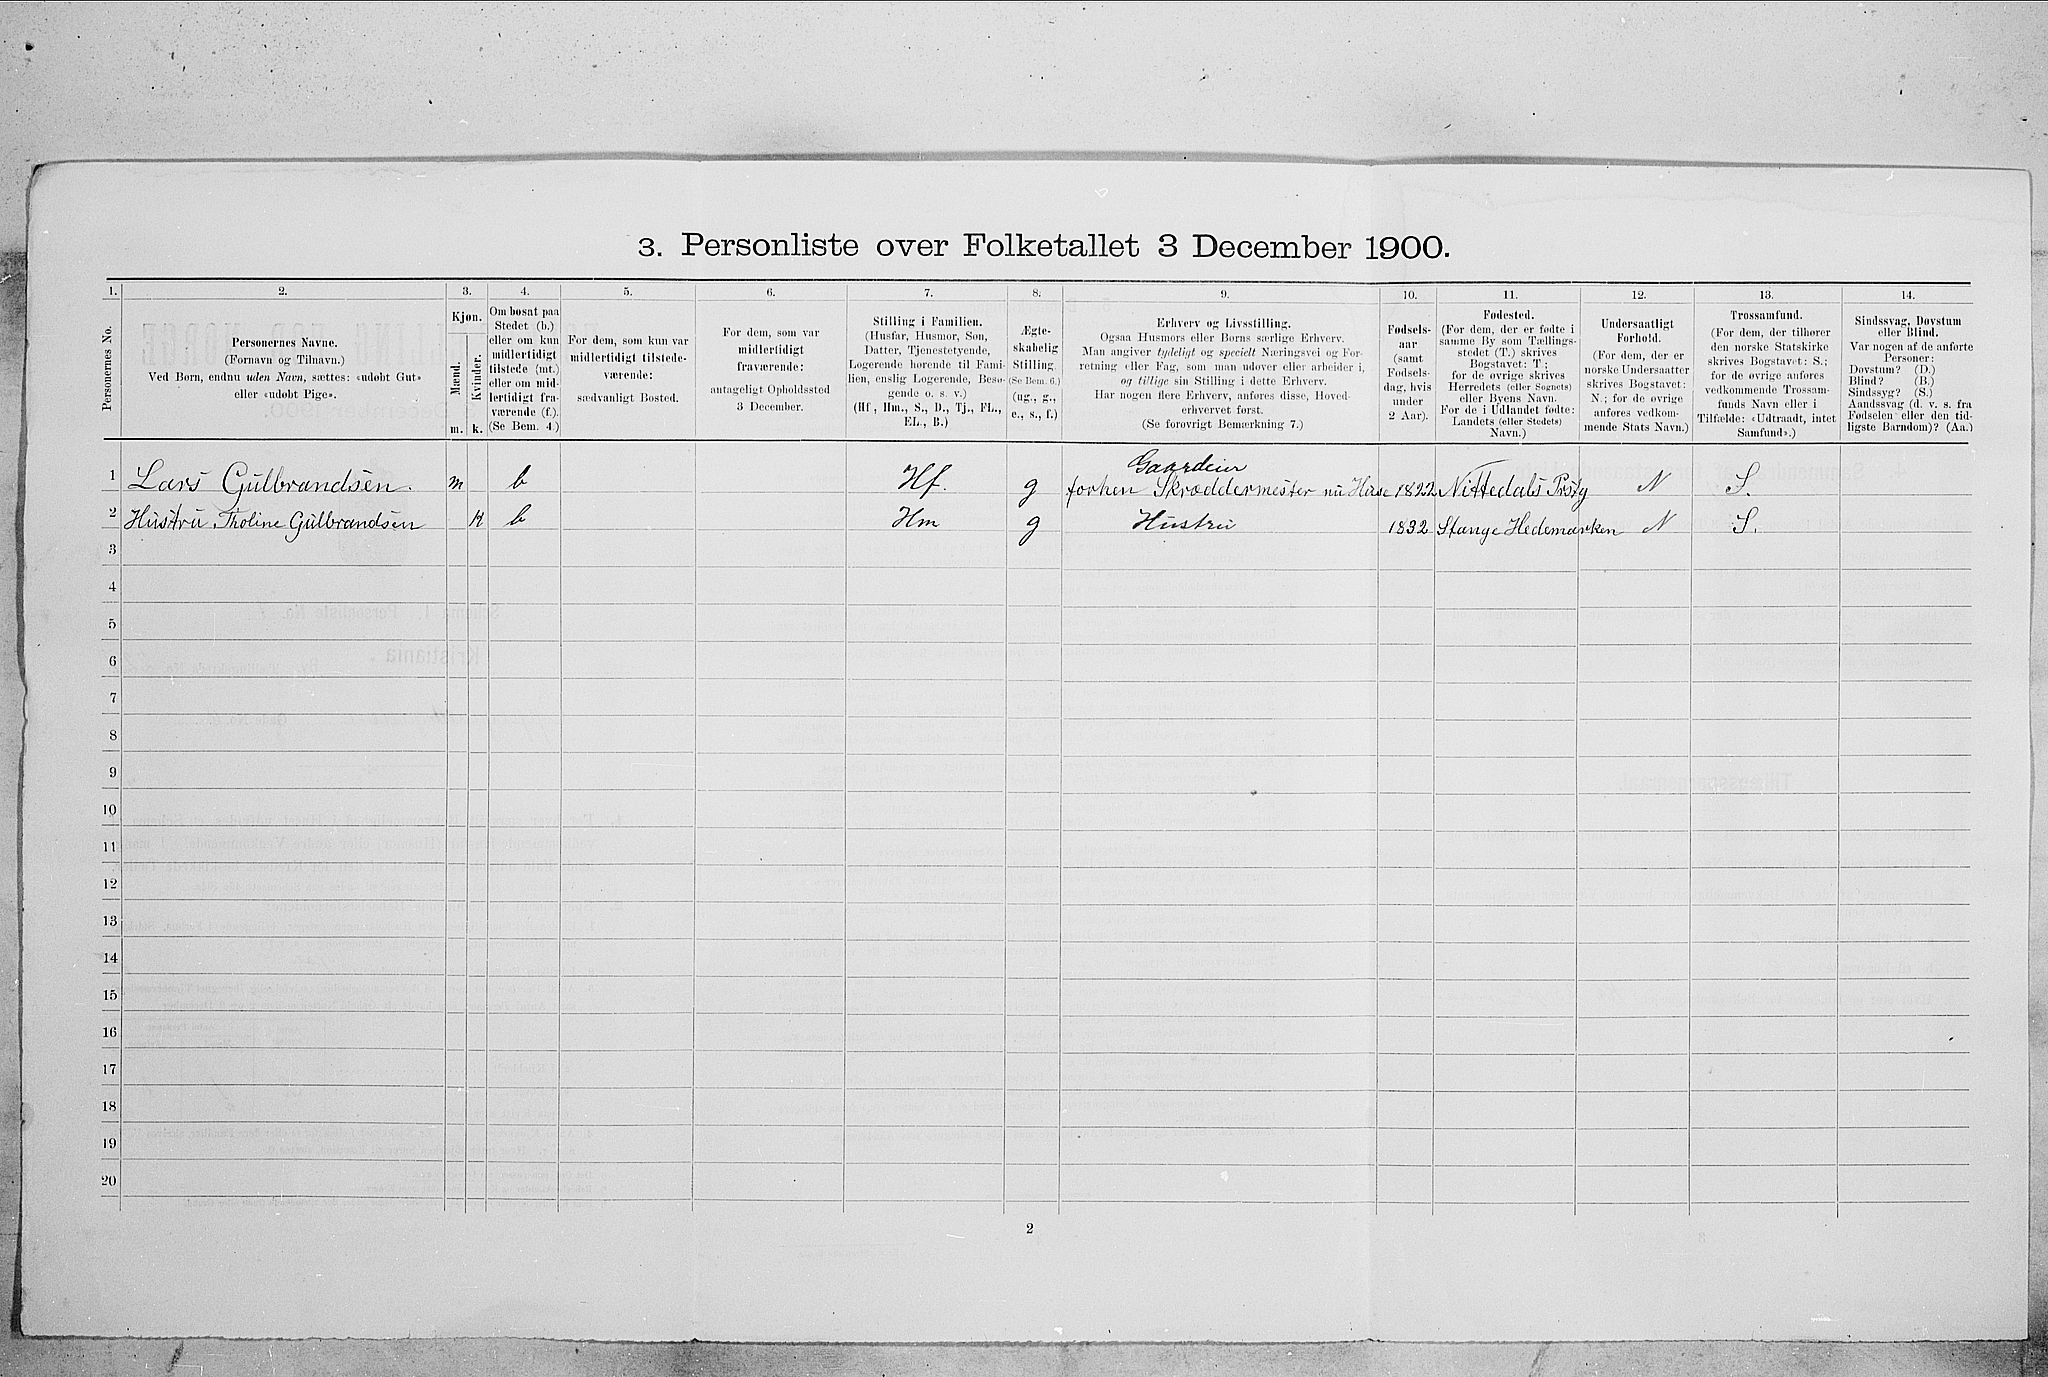 3. Personliste over Folketallet 3 December 1900.
1. 2. 3. 4. 5. 6. 7. 8. 9. 10. 11. 12. 13. 14.
Personernes No.
Personernes Navne.
(Fornavn og Tilnavn.)
Ved Børn, endnu uden Navn, sættes: «udøbt Gut»
eller «udøbt Pige».
Kjøn.
Mænd.
Kvinder.
m. k.
Om bosat paa
Stedet (b.)
eller om kun
midlertidigt
tilstede (mt.)
eller om mid-
lertidigt fra-
værende (f.).
(Se Bem. 4.)
For dem, som kun var
midlertidigt tilstede-
værende:
sædvanligt Bosted.
For dem, som var
midlertidigt
fraværende:
antageligt Opholdssted
3 December.
Stilling i Familien.
(Husfar, Husmor, Søn,
Datter, Tjenestetyende,
Logerende hørende til Fami-
lien, enslig Logerende, Besø-
gende o. s. v.)
(Hf., Hm., S., D., Tj., FL.,
EL., B.)
Ægte-
skabelig
Stilling.
(Se Bem. 6.)
(ug., g.,
e., s., f.)
Erhverv og Livsstilling.
Ogsaa Husmors eller Børns særlige Erhverv.
Man angiver tydeligt og specielt Næringsvei og For-
retning eller Fag, som man udøver eller arbeider i,
og tillige sin Stilling i dette Erhverv.
Har nogen flere Erhverv, anføres disse, Hoved-
erhvervet først.
(Se forøvrigt Bemærkning 7.)
Fødsels-
aar
(samt
Fødsels-
dag, hvis
under
2 Aar).
Fødested.
(For dem, der er fødte i
samme By som Tællings-
stedet (T.) skrives
Bogstavet: T;
for de øvrige skrives
Herredets (eller Sognets)
eller Byens Navn.
For de i Udlandet fødte:
Landets (eller Stedets)
Navn.)
Undersaatligt
Forhold.
(For dem, der er
norske Undersaatter
skrives Bogstavet:
N.; for de øvrige
anføres vedkom-
mende Stats Navn.)
Trossamfund.
(For dem, der tilhører
den norske Statskirke
skrives Bogstavet: S.;
for de øvrige anføres
vedkommende Trossam-
funds Navn eller i
Tilfælde: «Udtraadt, intet
Samfund».)
Sindssvag, Døvstum
eller Blind.
Var nogen af de anførte
Personer:
Døvstum? (D.)
Blind? (B.)
Sindssyg? (S.)
Aandssvag (d. v. s. fra
Fødselen eller den tid-
ligste Barndom)? (Aa.)
Gaardeier
1 Lars Gulbrandsen. m b Hf. g forhen Skræddermester nu 1822 Nittedals N S.
2 Hustru Tholine Gulbrandsen K b Hm g Hustru 1832 Stange Hedemarken N S.
3
4
5
6
7
8
9
10
11
12
13
14
15
16
17
18
19
20
2